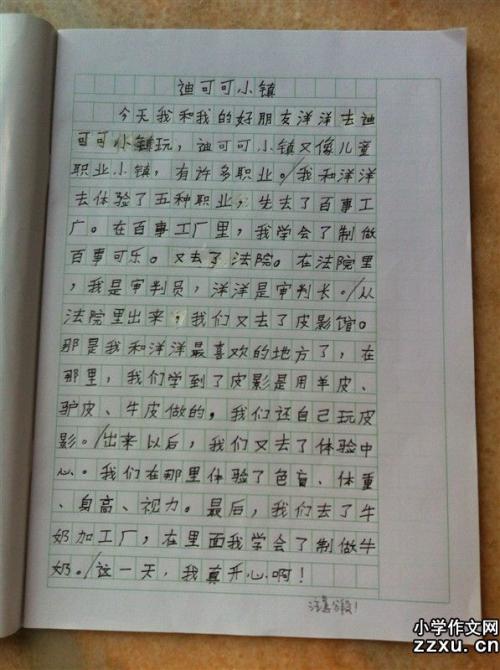 迪可可小镇
今天我和我的好朋友洋洋去迪
可可小镇玩，迪可可小镇又像儿童
职业小镇，有许多职业。我和洋洋
去体验了五种职业，先去了百事工
广。在百事工厂里，我学会了制做
百事可乐。又去了法院。在法院里
，我是审判员，洋洋是审判长。从
法院里出来，我们又去了皮影馆。
那是我和洋洋最喜欢的地方了，在
那里，我们学到了皮影是用羊皮、
驴皮、牛皮做的，我们还自己玩皮
影。出来以后，我们又去了体验中
心。我们在那里体验了色盲、体重
、身高、视力。最后，我们去了牛
奶加工厂，在里面我学会了制做牛
奶。这一天，我真开心啊！
注意分段！
小学作文网
zzxu.cn